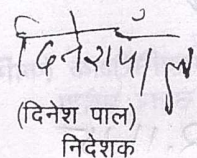 दिनेश पाल
(दिनेश पाल)
निदेशक